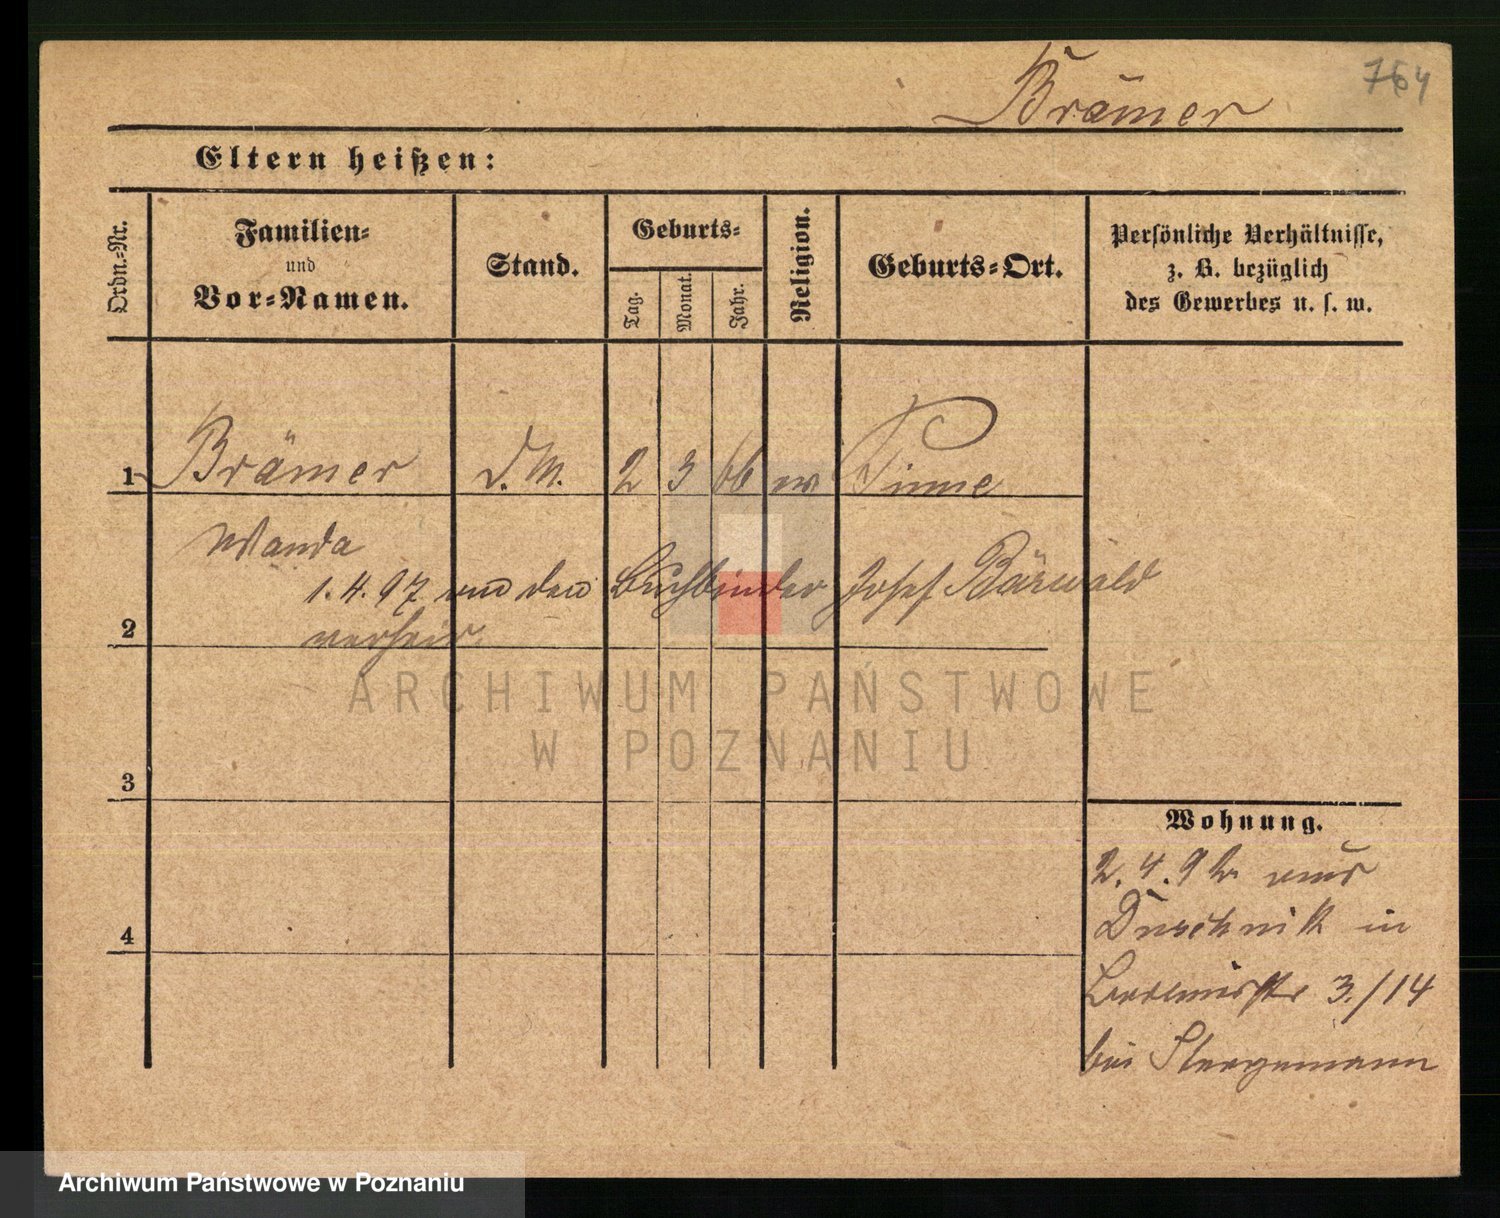 764
Brämer
Eltern heißen:
Ordn.-Nr.
Familien-
und
Vor-Namen.
Stand.
Geburts-
Tag.
Monat.
Jahr.
Religion.
Geburts-Ort.
Persönliche Verhältnisse,
z. B. bezüglich
des Gewerbes u. s. w.
1 Brämer D. M. 2 3 66 ev Pinne
Wanda
1. 4. 97 den Buchbinder Josef Bärwald
2 verheir
3
4
Wohnung.
2. 4. 92 aus
Duschnik in
3./14
bei
ARCHIWUM PAŃSTWOWE
W POZNANIU
Archiwum Państwowe w Poznaniu